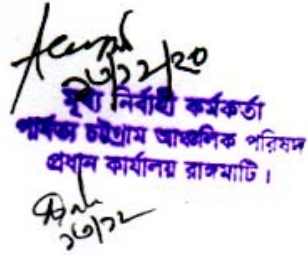 ২৩/১২/২০
মুখ্য নির্বাহী কর্মকর্তা
পার্বত্য চট্টগ্রাম আঞ্চলিক পরিষদ
প্রধান কার্যালয় রাঙ্গামাটি।
২৩/১২